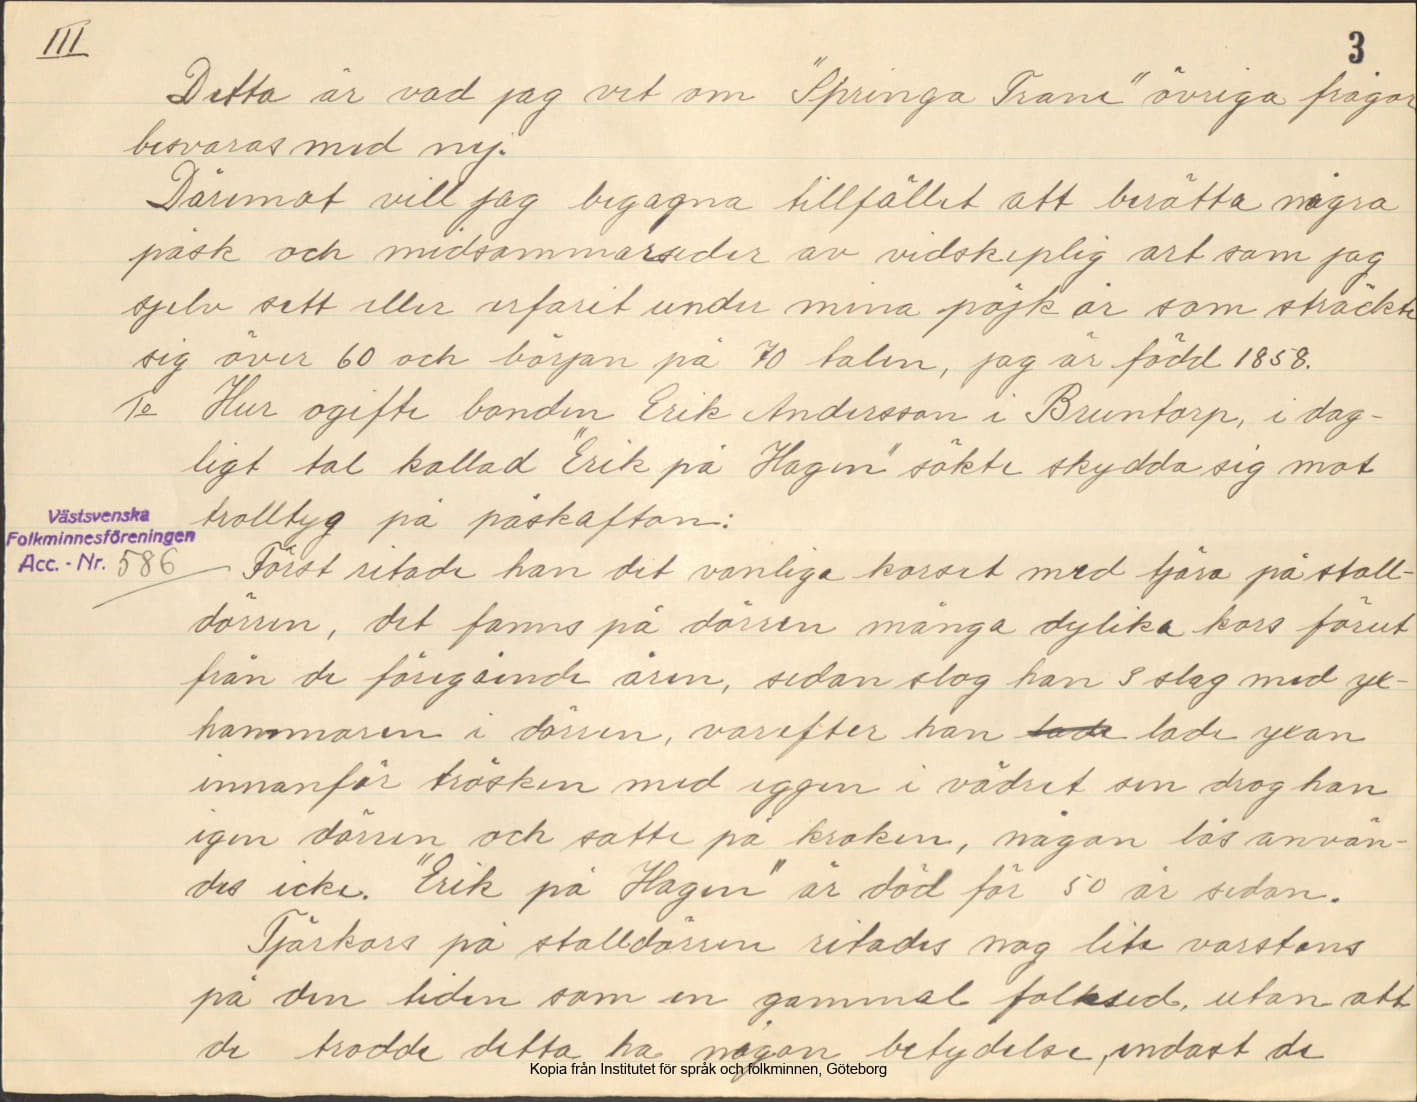 III
3
Detta är vad jag vet om "Springa Trane" övriga frågor
besvaras med nej.
Däremot vill jag begagna tillfället att berätta några
påsk och midsommarseder av vidskeplig art som jag
sjelv sett eller erfarit under mina pojk år som sträckte
sig över 60 och början på 70 talen, jag är född 1858.
1o Hur ogifte bonden Erik Andersson i Bruntorp, i dag-
ligt tal kallad "Erik på Hagen" sökte skydda sig mot
trolltyg på påskafton:
Västsvenska
Folkminnesföreningen
Acc. - Nr. 586
Först ritade han det vanliga korset med tjära på stall-
dörren, det fanns på dörren många dylika kors förut
från de föregående åren, sedan slog han 3 slag med yx-
hammaren i dörren, varefter han lade lade yxan
innanför trösken med eggen i vädret sen drog han
igen dörren och satte på kroken, någon lås använ-
des icke. "Erik på Hagen" är död för 50 år sedan.
Tjärkors på stalldörren ritades nog lite varstans
på den tiden som en gammal folksed, utan att
de trodde detta ha någon betydelse, endast de
Kopia från Institutet för språk och folkminnen, Göteborg